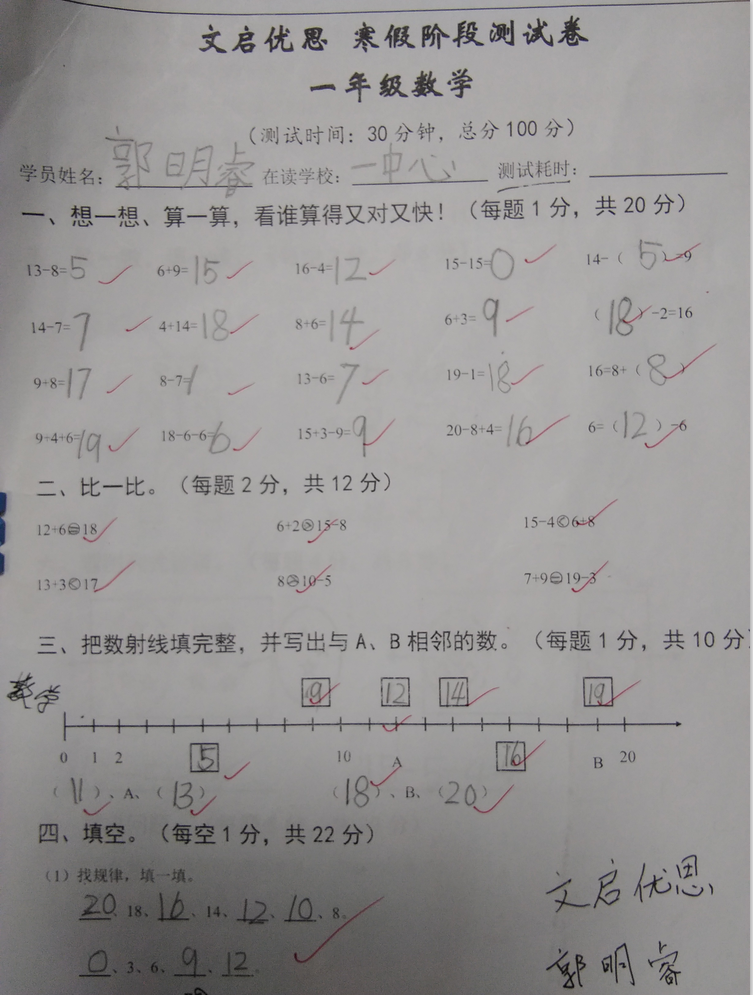 文启优思 寒假阶段测试卷
一年级数学
（测试时间：30分钟，总分100分）
学员姓名：郭明睿 在读学校：一中心 测试耗时：
一、想一想、算一算，看谁算得又对又快！（每题1分，共20分）
13-8=5 6+9=15 16-4=12 15-15=0 14-（5）=9
14-7=7 4+14=18 8+6=14 6+3=9 （18）-2=16
9+8=17 8-7=1 13-6=7 19-1=18 16=8+（8）
9+4+6=19 18-6-6=6 15+3-9=9 20-8+4=16 6=（12）-6
二、比一比。（每题2分，共12分）
12+6=18 6+2>15-8 15-4<6+8
13+3<17 8>10-5 7+9=19-3
三、把数射线填完整，并写出与A、B相邻的数。（每题1分，共10分）
数学
9 12 14 19
0 1 2 5 10 A 16 B 20
（11）、A、（13） （18）、B、（20）
四、填空。（每空1分，共22分）
（1）找规律，填一填。
20、18、16、14、12、10、8。
0、3、6、9、12。
文启优思
郭明睿